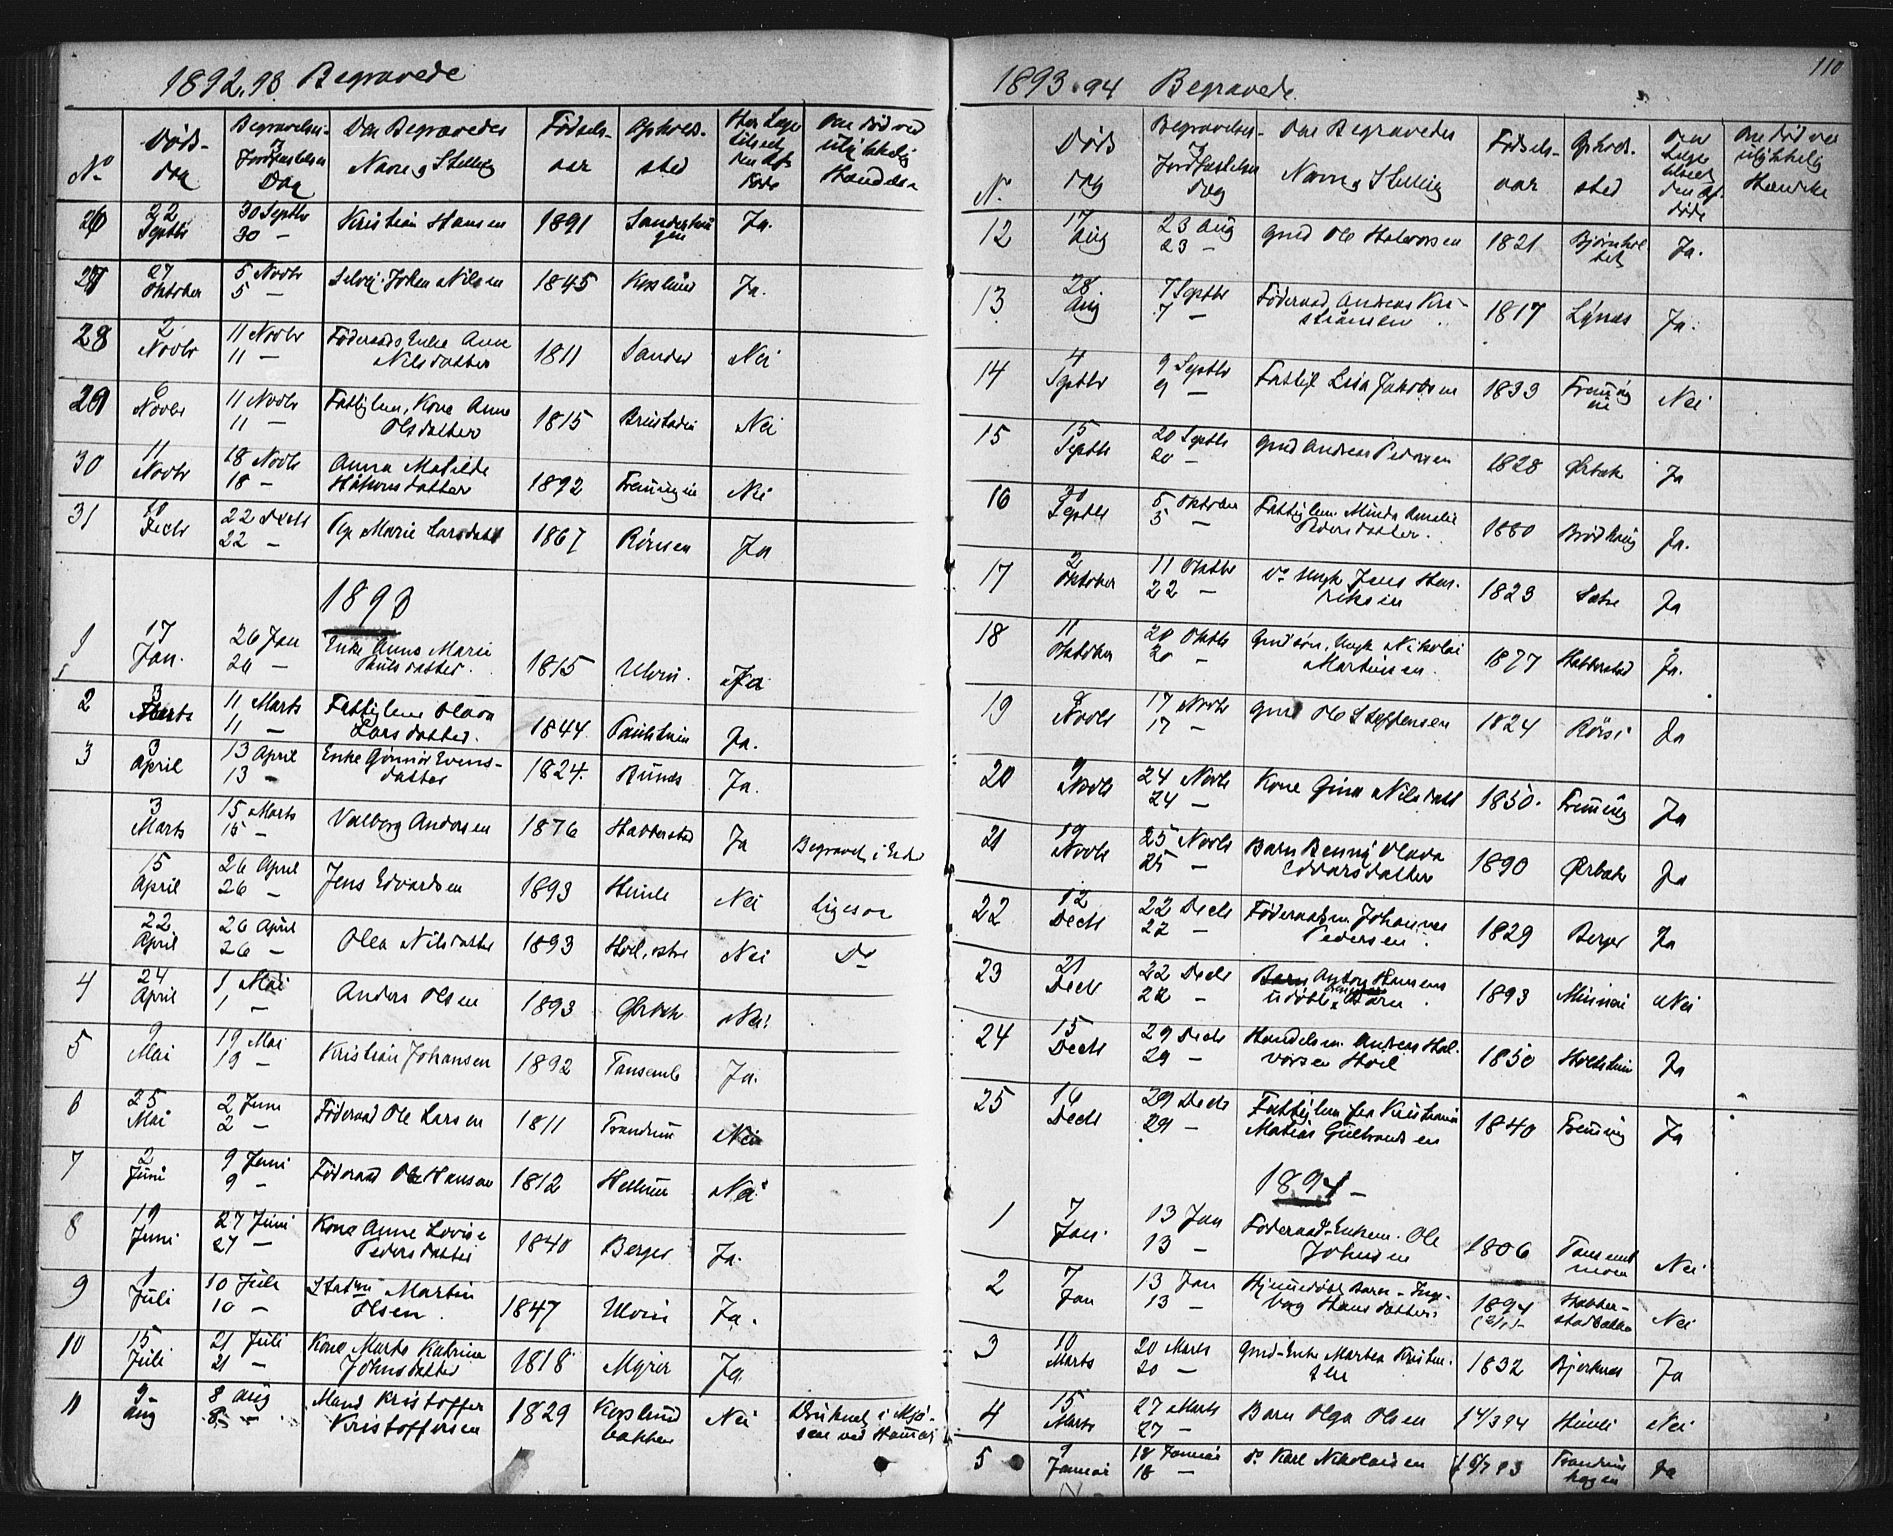 1892.93 Begravede
No
Døds-
dag
Begravelses-
og
Jordfæstelses
Dag
Den Begravedes
Navn og Stilling
Fødsels-
aar
Opholds-
sted
Har Læge
tilseet
den Af-
døde
Om død ved
ulykkelig
Hændelse
26 22 Septbr 30 Septbr Kristian Hansen 1891 Ja.
30 —
27 27 Oktober 5 Novbr Selvei. Johan Nilsen 1845 Koslund Ja.
5 —
28 2 Novbr 11 Novbr Føderaads Enke Anne 1811 Sander Nei
11 — Nilsdatter
29 6 Novbr 11 Novbr Fattiglem, Kone Anne 1815 Nei
11 — Olsdatter
30 11 Novbr 18 Novbr Anna Matilde 1892 Fremingen Nei
18 — Håkonsdatter
31 Decbr 22 Decbr Pge Marie Larsdatt 1867 Rønsen Ja
22 —
1893
1 17 Jan. 26 Jan Enke Anne Marie 1815 Ulvin. Ja
26 — Paulsdatter.
2 3 Marts 11 Marts Fattiglem Olava 1844 Ja.
11 — Larsdatter.
3 3 April 13 April Enke Gunnor Evens- 1824. Bunes Ja.
13 — datter
3 Marts 15 Marts Valborg Andersen 1876 Habberstad Ja Begravet i Eids
15 —
15 April 26 April Jens Edvardsen 1893 Himle Nei Ligesaa
26 —
22 April 26 April Olea Nilsdatter 1893 Hoel, østre Nei Do
26 —
4 24 April 1 Mai Anders Olsen 1893 Ørbæk Nei
1 —
5 9 Mai 19 Mai Kristian Johansen 1892 Tønsemb Ja.
19 —
6 25 Mai 2 Juni Føderaad Ole Larsen 1811 Trandum Nei
2 —
7 2 Juni 9 Juni Føderaad Ole Hansen 1812 Hellum Nei
9 —
8 19 Juni 27 Juni Kone Anne Lovise 1840 Berger Ja.
27 — Pedersdatter
9 1 Juli 10 Juli Martin 1847 Ulvin Ja.
10 — Olsen
10 15 Juli 21 Juli Kone Marte Katrine 1818 Myrer Ja
21 — Johnsdatter
11 3 Aug 8 Aug Mand Kristoffer 1829 Koslund Nei Druknet i Mjø-
8 — Kristoffersen bakken sen ved Hamar
1893.94 Begravede 110
N.
Døds
dag
Begravelses-
og
Jordfæstelses
dag
Den Begravedes
Navn og Stilling
Fødsels-
aar
Opholds-
sted
Læge
tilseet
den Af-
døde
Om død ved
ulykkelig
Hændelse
12 17 Aug 23 Aug Gmd Ole Halvorsen 1821 Ja.
23 —
13 28 Aug 7 Septbr Føderaad, Andreas Kri- 1817 Lynæs Ja.
7 — stiansen
14 4 Septbr 9 Septbr Fattigl Lisa Jakobsen 1833 Freming Nei
9 —
15 15 Septbr 20 Septbr Gmd Andreas Pedersen 1828 Ørbæk Ja
20 —
16 30 Septbr 5 Oktober Fattiglem Minda Amalie 1880 Brødhaug Ja.
5 — Pedersdatter.
17 2 Oktober 11 Oktbr Do Ungk Jens Hen- 1823 Sætre Ja
22 — riksen
18 11 Oktober 20 Oktbr Gmdsøn, Ungk Nikolai 1877 Habberstad Ja.
20 — Martinsen.
19 8 Novbr 17 Novbr Gmd Ole Steffensen 1824 Rørsi Ja
17 —
20 9 Novbr 24 Novbr Kone Gina Nilsdatt 1850. Freming Ja
24 —
21 19 Novbr 25 Novbr Barn Benny Olava 1890 Ørbæk Ja
25 — Edvarsdatter
22 12 Decbr 22 Decbr Føderaadsm. Johannes 1829 Berger Ja
22 — Pedersen
23 21 Decbr 22 Decbr Hansens 1893 Minnesi Nei
22 — udøbte Barn
24 15 Decbr 29 Decbr Handelsm. Andreas Hal- 1850 Ja
29 — vorsen Hoel
25 16 Decbr 29 Decbr Fattiglem fra Kristiania 1840 Freming Ja
29 — Matias Gulbrandsen
1894 —
1 7 Jan. 13 Jan Føderaad-Enkem. Ole 1806 Nei
13 — Johnsen
2 7 Jan 13 Jan Hjemmedøbt Barn - Ing- 1894 Habber- Nei
13 — borg Hansdatter. stadbakke
3 10 Marts 20 Marts Gmd-Enke Martea Kristen- 1832 Bjerknes Ja
20 — sen
4 15 Marts 27 Marts Barn Olga Olsen 14/3 94 Himle Nei
27 —
5 9 Januar 18 Januar do Karl Nikolaisen Trandum Ja
18 — hagen